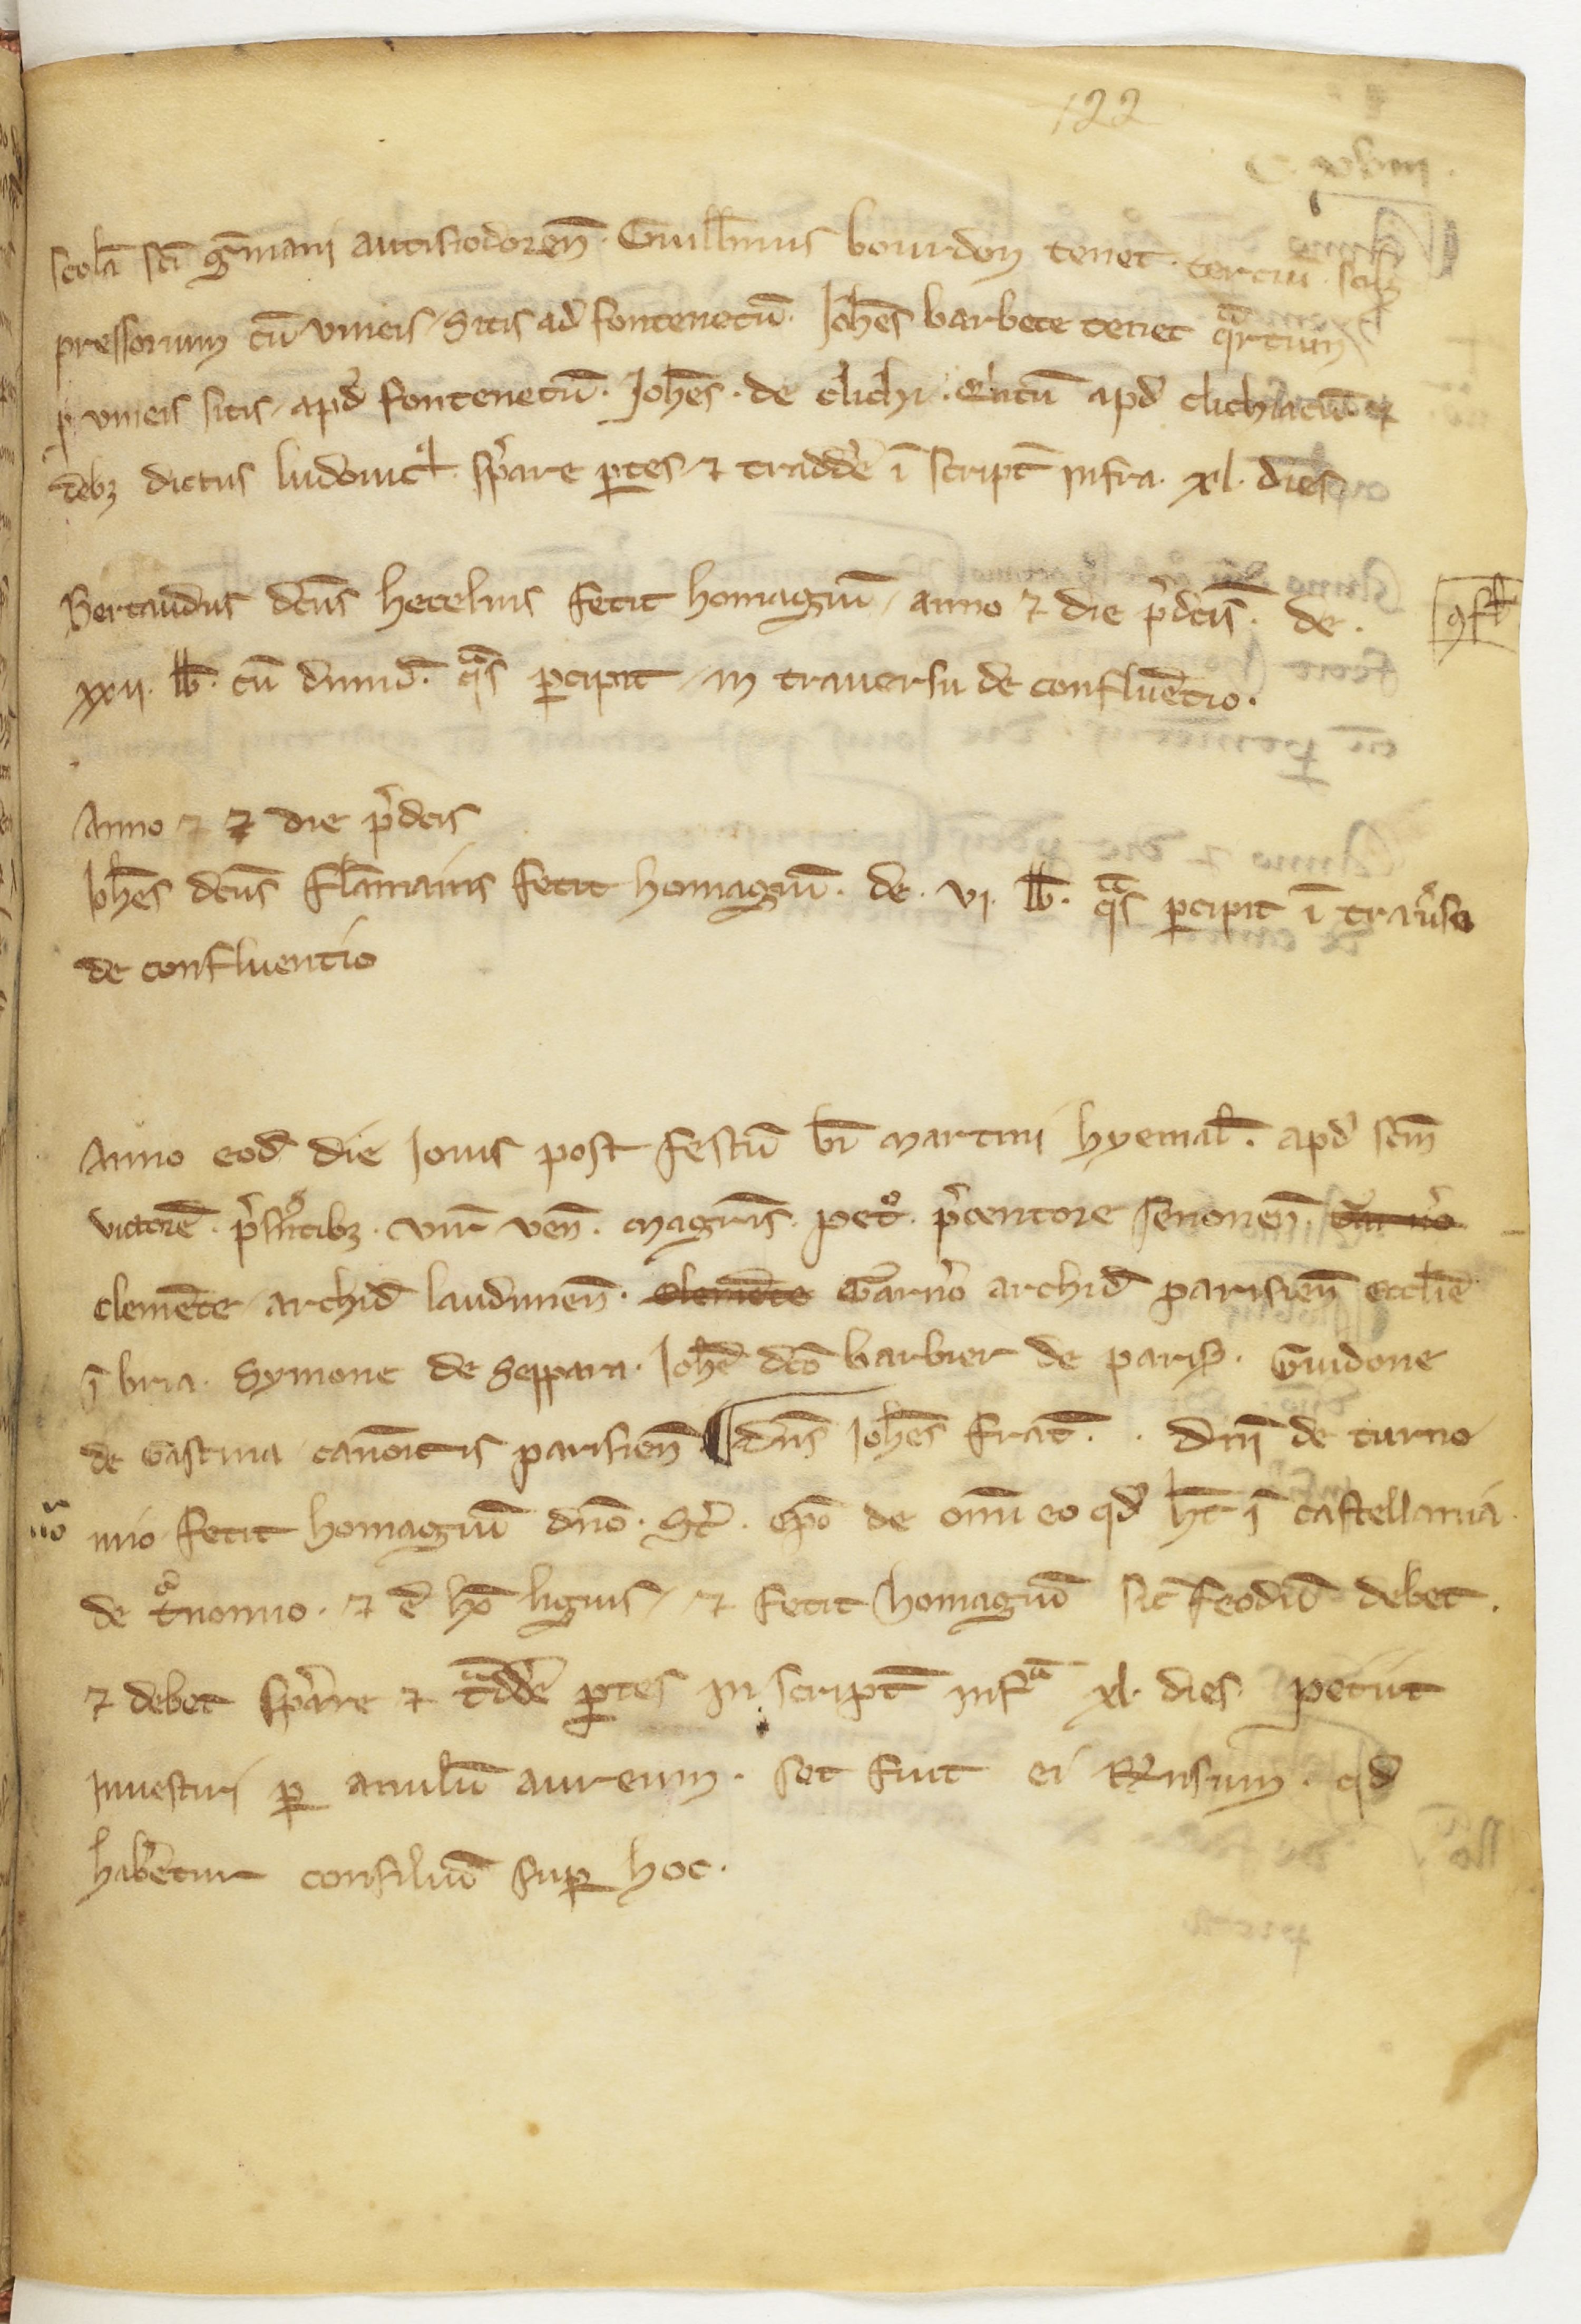 122
scolā sc̄i g̃mani autisiodoren̄. Guill̄mus bourdon tenet. terciū. scilꝫ
pressorium cū vineis sitis ad fontenetū. Joh̄es barbete tenet qᵃrtum
ꝓ vineis sitis apd̓ fontenetū. Joh̄es. de clichi. Qⁱntū apd̓ clichiacū. ⁊
debꝫ dictus ludouicꝰ sp̄are ꝑtes ⁊ tradd̓e ī script̄ infra. xl. dies
Bertaudus dc̄us hecelins fecit homagiū, anno ⁊ die p̓dc̄is. de.
9fl̄
xxii. lb̄. cū dimid̄. qᵃs ꝑcipit in trauersu de confluētio.
Anno ⁊ ⁊ die p̓dcis
Joh̄es dc̄us flāmains fecit homagiū. de. vi. lb̄. qᵃs ꝑcipit ī trau̓su
de confluentio
Anno eod̄ die Jouis post festū bī martini hyemal̄. apd̓ sc̄m
victorē. p̓sn̄tibꝫ. vir̄ ven̄. magr̄is. pet°. p̓centore senonen̄. Gar̄n̓o
clemēte archid̄ laudunen̄. clemēte Garn̓o archid̄ parisien̄ eccl̄ie
ī bria. Symone de Seppara. Joh̄e dc̄o barbier de paris̄. Guidone
de Gastina canoīcis parisien̄. dn̄s Joh̄es frat̄. . Dn̄i de turno
n̄o mio fecit homagiū dn̄o. St̄. ep̄o de om̄i eo qd̓ h̄t ī castellania
de t°nomio. ⁊ ē hō ligius, ⁊ fecit homagiū sic̄ feodū debet.
⁊ debet sp̄are ⁊ tᵃdd̓e ꝑtes in script̄ infᵃ xl. dies petiit
inuestiri ꝑ anulū aureum. set fuit ei Rn̄sum. qd̓
hab̄etur consiliū suꝑ hoc.